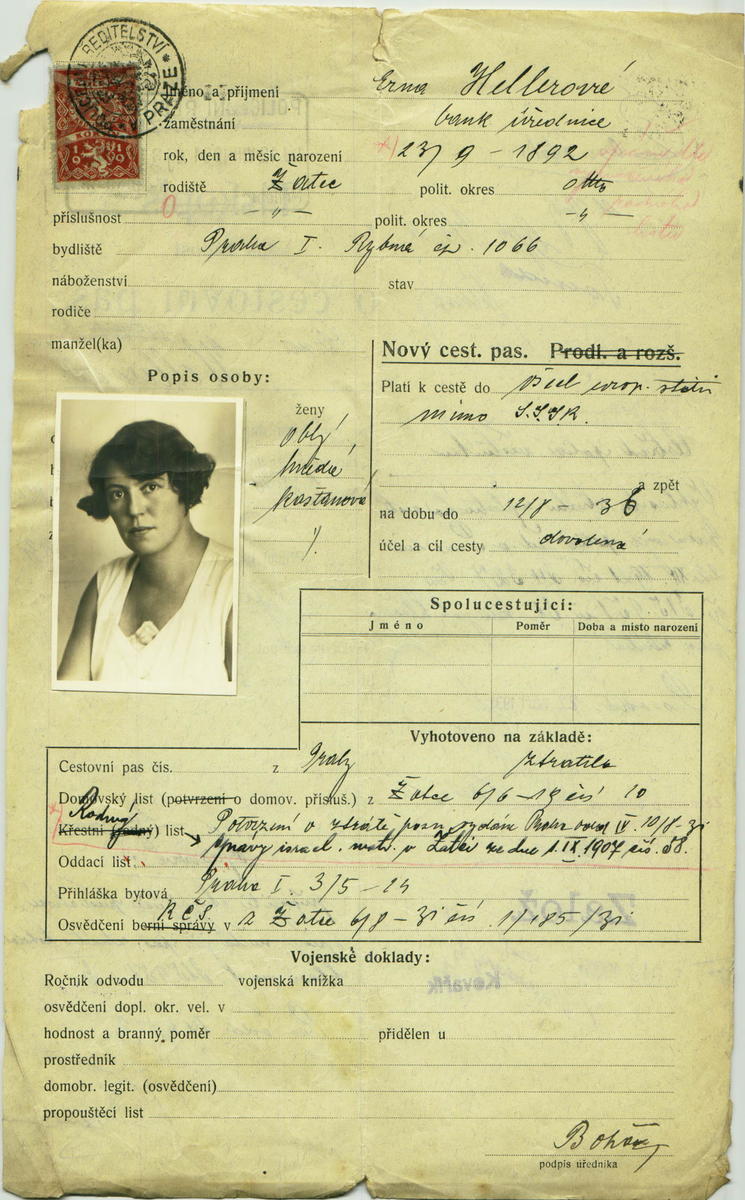 ŘEDITELSTVÍ
PRAZE
Jméno a příjmení Erna Hellerové
zaměstnání bank úřednice
rok, den a měsíc narození 23/9 - 1892
rodiště Žatec polit. okres
příslušnost -"- polit. okres -"-
bydliště Praha I. Rybná čp. 1066
náboženství stav
rodiče
manžel(ka)
Nový cest. pas. Prodl. a rozš.
Popis osoby:
Platí k cestě do všel evrop. států
mimo S.S.S.R.
ženy
oblý
hnědé
kaštanové
a zpět
na dobu do 12/8 - 36
účel a cíl cesty dovolená
Spolucestující:
Jméno Poměr Doba a místo narození
Vyhotoveno na základě:
Cestovní pas čís. z Prahy ztratila
Domovský list (potvrzení o domov. přísluš.) z Žatce 6/6 - 18 čís 10
Rodný
Křestní (rodný) list Potvrzení o ztrátě pasu vydán Praha IV. 10/8 - 31
Zprávy israel. matr. v Žatci ze dne 1.IX.1907 čís. 58.
Oddací list
Přihláška bytová Praha I. 3/5 - 24
RČS
Osvědčení berní správy v z Žatce 6/8 - 31 čís 1/185/31
Vojenské doklady:
Ročník odvodu vojenská knížka
osvědčení dopl. okr. vel. v
hodnost a branný poměr přidělen u
prostředník
domobr. legit. (osvědčení)
propouštěcí list
podpis úředníka